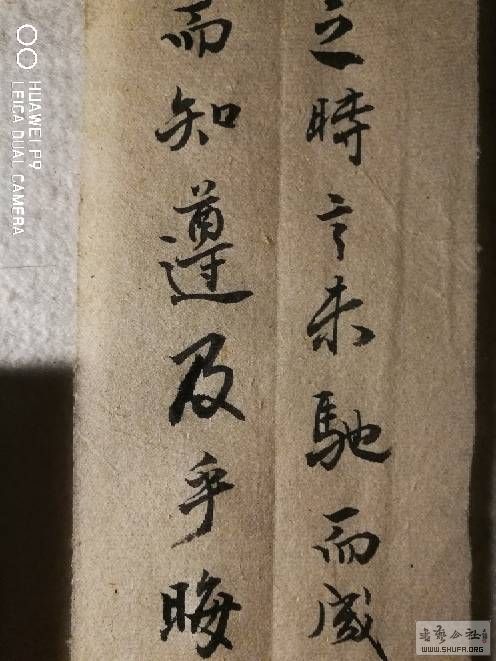 之時言未馳而成
而知遵及乎晦
HUAWEI P9
LEICA DUAL CAMERA
書藝公社
WWW.SHUFA.ORG